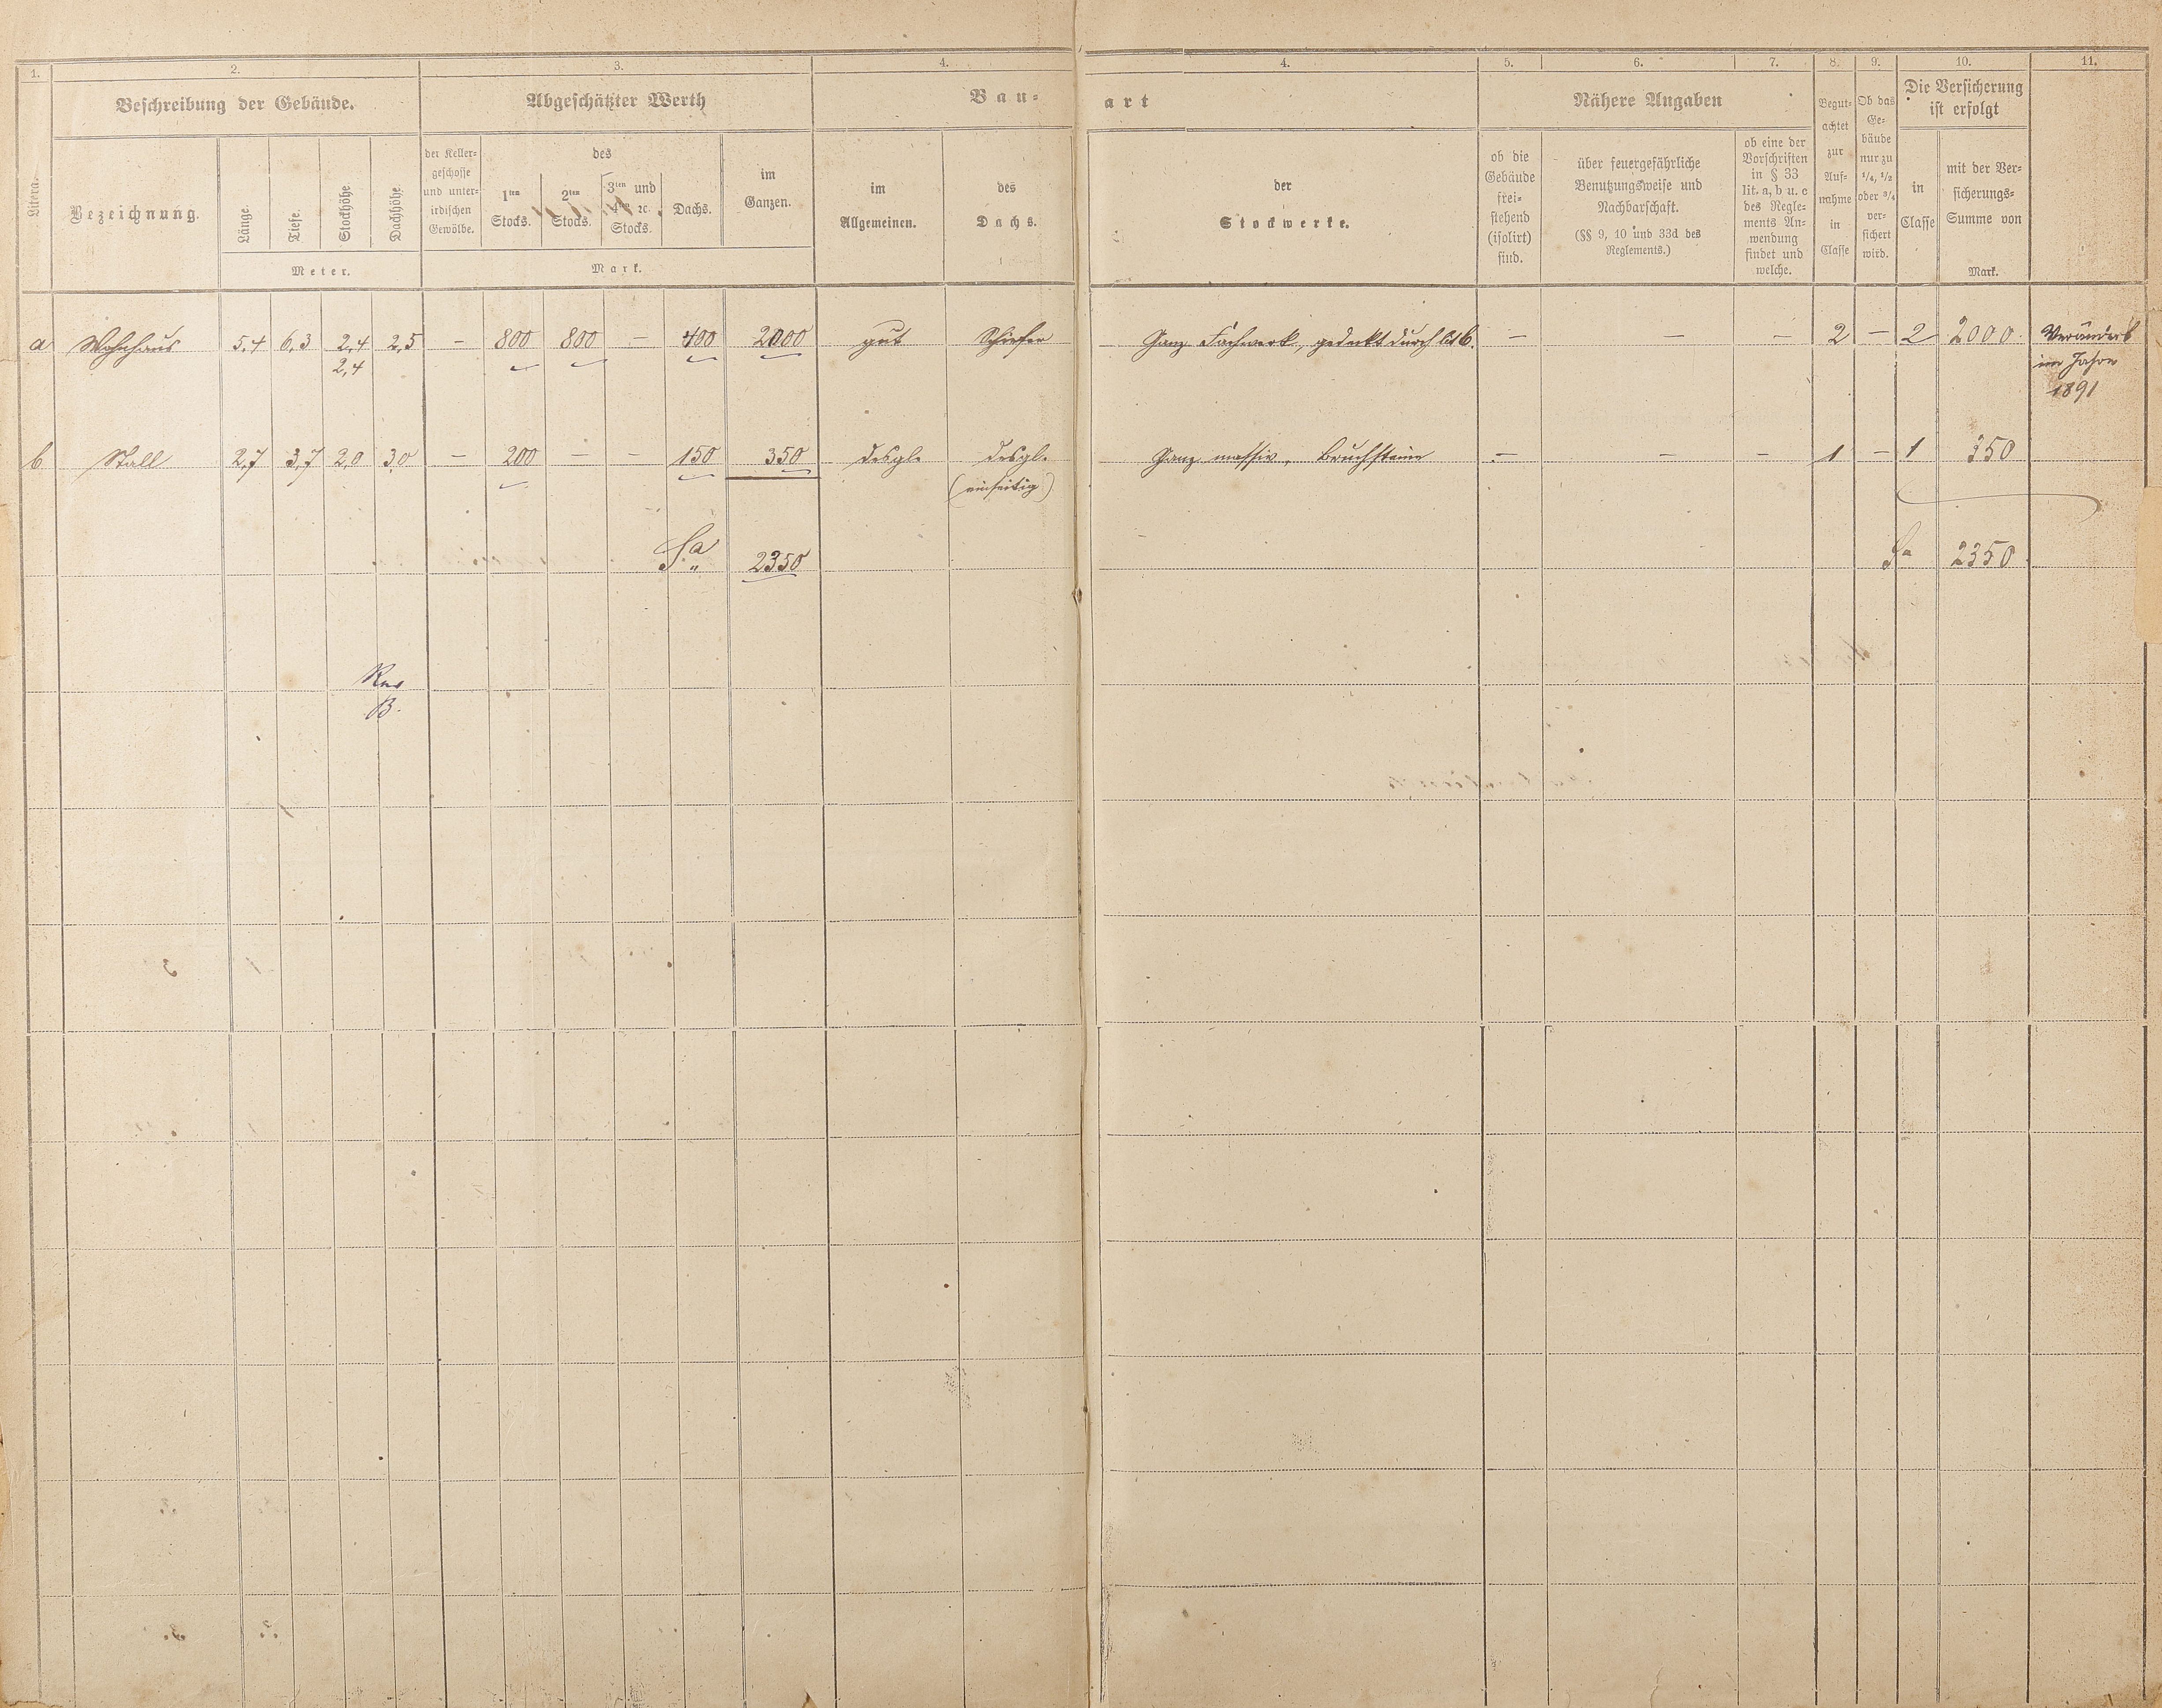 1. 2. 3. 4. 4. 5. 6. 7. 8. 9. 10. 11.
Beschreibung der Gebäude. Abgeschätzter Werth Bau- art Nähere Angaben
Begut-
achtet
zur
Auf-
nahme
in
Classe
Ob das
Ge-
bäude
nur zu
1/4, 1/2
oder 3/4
ver-
sichert
wird.
Die Versicherung
ist erfolgt
Litera.
Bezeichnung.
Länge.
Tiefe.
Stockhöhe.
Dachhöhe.
Meter.
der Keller-
geschosse
und unter-
irdischen
Gewölbe.
des
1ten
Stocks.
2ten
Stocks.
3ten und
4ten ꝛc.
Stocks.
Dachs.
im
Ganzen.
Mark.
im
Allgemeinen.
des
Dachs.
der
Stockwerke.
ob die
Gebäude
frei-
stehend
(isolirt)
sind.
über feuergefährliche
Benutzungsweise und
Nachbarschaft.
(§§ 9, 10 und 33d des
Reglements.)
ob eine der
Vorschriften
in § 33
lit. a, b u. c
des Regle-
ments An-
wendung
findet und
welche.
in
Classe
mit der Ver-
sicherungs-
Summe von
Mark.
a Wohnhaus 5,4 6,3 2,4 2,5 — 800 800 — 400 2000 gut Schiefer Ganz Fachwerk, gedeckt durch lit b. — — — 2 — 2 2000 Verändert
2,4 im Jahre
1891
b Stall 2,7 3,7 2,0 3,0 — 200 — — 150 350 desgl. desgl. Ganz massiv, Bruchsteine — — — 1 — 1 350
(einseitig)
Sa 2350 Sa 2350
B.